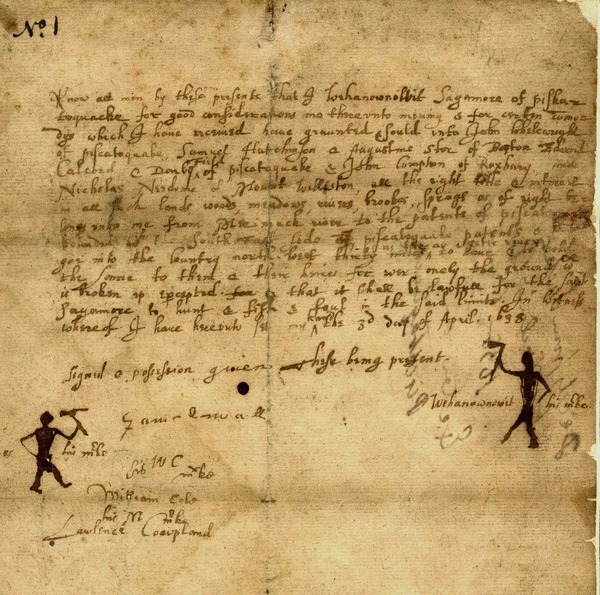 No 1
Know all men by these presents that I Wehanownowit Sagamore of piskat
toquacke for good considerations me therevnto mouing & for certen como
dys which I have receiued have graunted & sould vnto John Whelewright
of piscatoquake, Samuel Hutchinson & Augustine Stor of Boston Edward
Calcord & Darby of piscatoquake & John Compton of Roxbury and
Nicholas Needome of Mount Walliston all the right title & interest
in all such lands woods meadows riuers brookes springs as of right be
longs vnto me from Merimack riuer to the patents of piscat
bounded South East side of piscatoquake patents &
goe into the Country north West thirty miles to haue & to hold
the same to them & their heires for euer. onely the ground
is broken vp excepted. & that it shall be lawfull for the said
Sagamore to hunt & fish & foul in the said limits. In witnes
wherof I have herevnto set my hand the 3d day of April. 1638
Signed & possession giuen these being present.
Wehanownowit his mke.
his mke
his W C mke
William Cole
his M mke
Lawrence Coopland